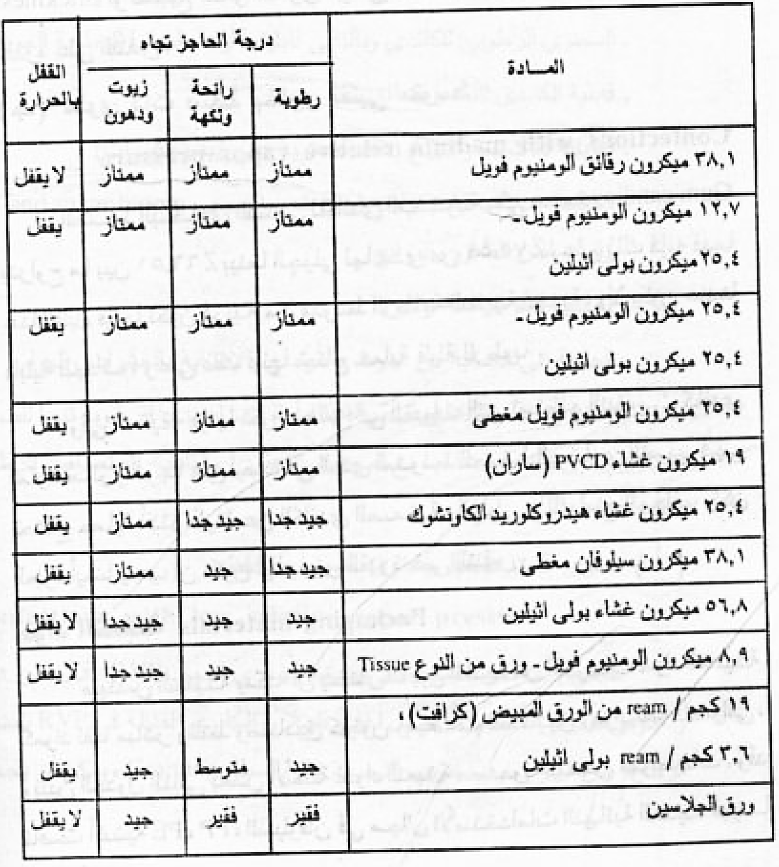 المــادة درجة الحاجز تجاه القفل بالحرارة
رطوية رائحة ونكهة زيوت ودهون
٣٨,١ ميكرون رقائق الومنيوم فويل ممتاز ممتاز ممتاز لا يقفل
١٢,٧ ميكرون الومنيوم فويل - ممتاز ممتاز ممتاز يقفل
٢٥,٤ ميكرون بولى اثيلين
٢٥,٤ ميكرون الومنيوم فويل - ممتاز ممتاز ممتاز يقفل
٢٥,٤ ميكرون بولى اثيلين
٢٥,٤ ميكرون الومنيوم فويل مغطى ممتاز ممتاز ممتاز يقفل
١٩ ميكرون غشاء PVCD (ساران) ممتاز ممتاز ممتاز يقفل
٢٥,٤ ميكرون غشاء هيدروكلوريد الكاونشوك جيد جدا جيد جدا ممتاز يقفل
٣٨,١ ميكرون سيلوفان مغطى جيد جدا جيد ممتاز يقفل
٥٦,٨ ميكرون غشاء بولى اثيلين جيد جيد جيد جدا لا يقفل
٨,٩ ميكرون الومنيوم فويل - ورق من النوع Tissue جيد جيد جيد جدا لا يقفل
١٩ كجم / ream من الورق المبيض (كرافت) ؛
٣,٦ كجم / ream بولى اثيلين جيد متوسط جيد يقفل
ورق الجلاسين فقير فقير جيد لا يقفل